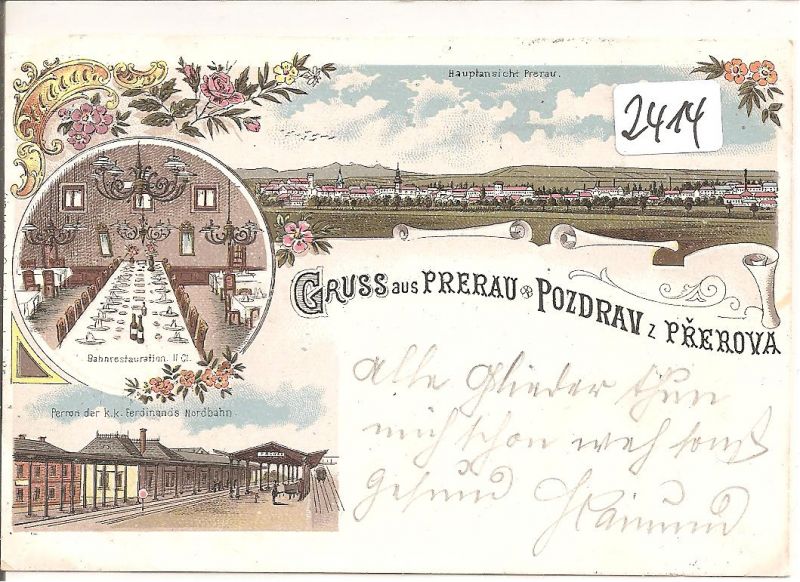 Hauptansicht Prerau.
2414
GRUSS aus PRERAU * POZDRAV z PŘEROVA
Bahnrestauration. II Cl.
Perron der k.k. Ferdinands Nordbahn.
PREROV
Alle Glieder thun
mich schon weh sonst
gesund Raimund